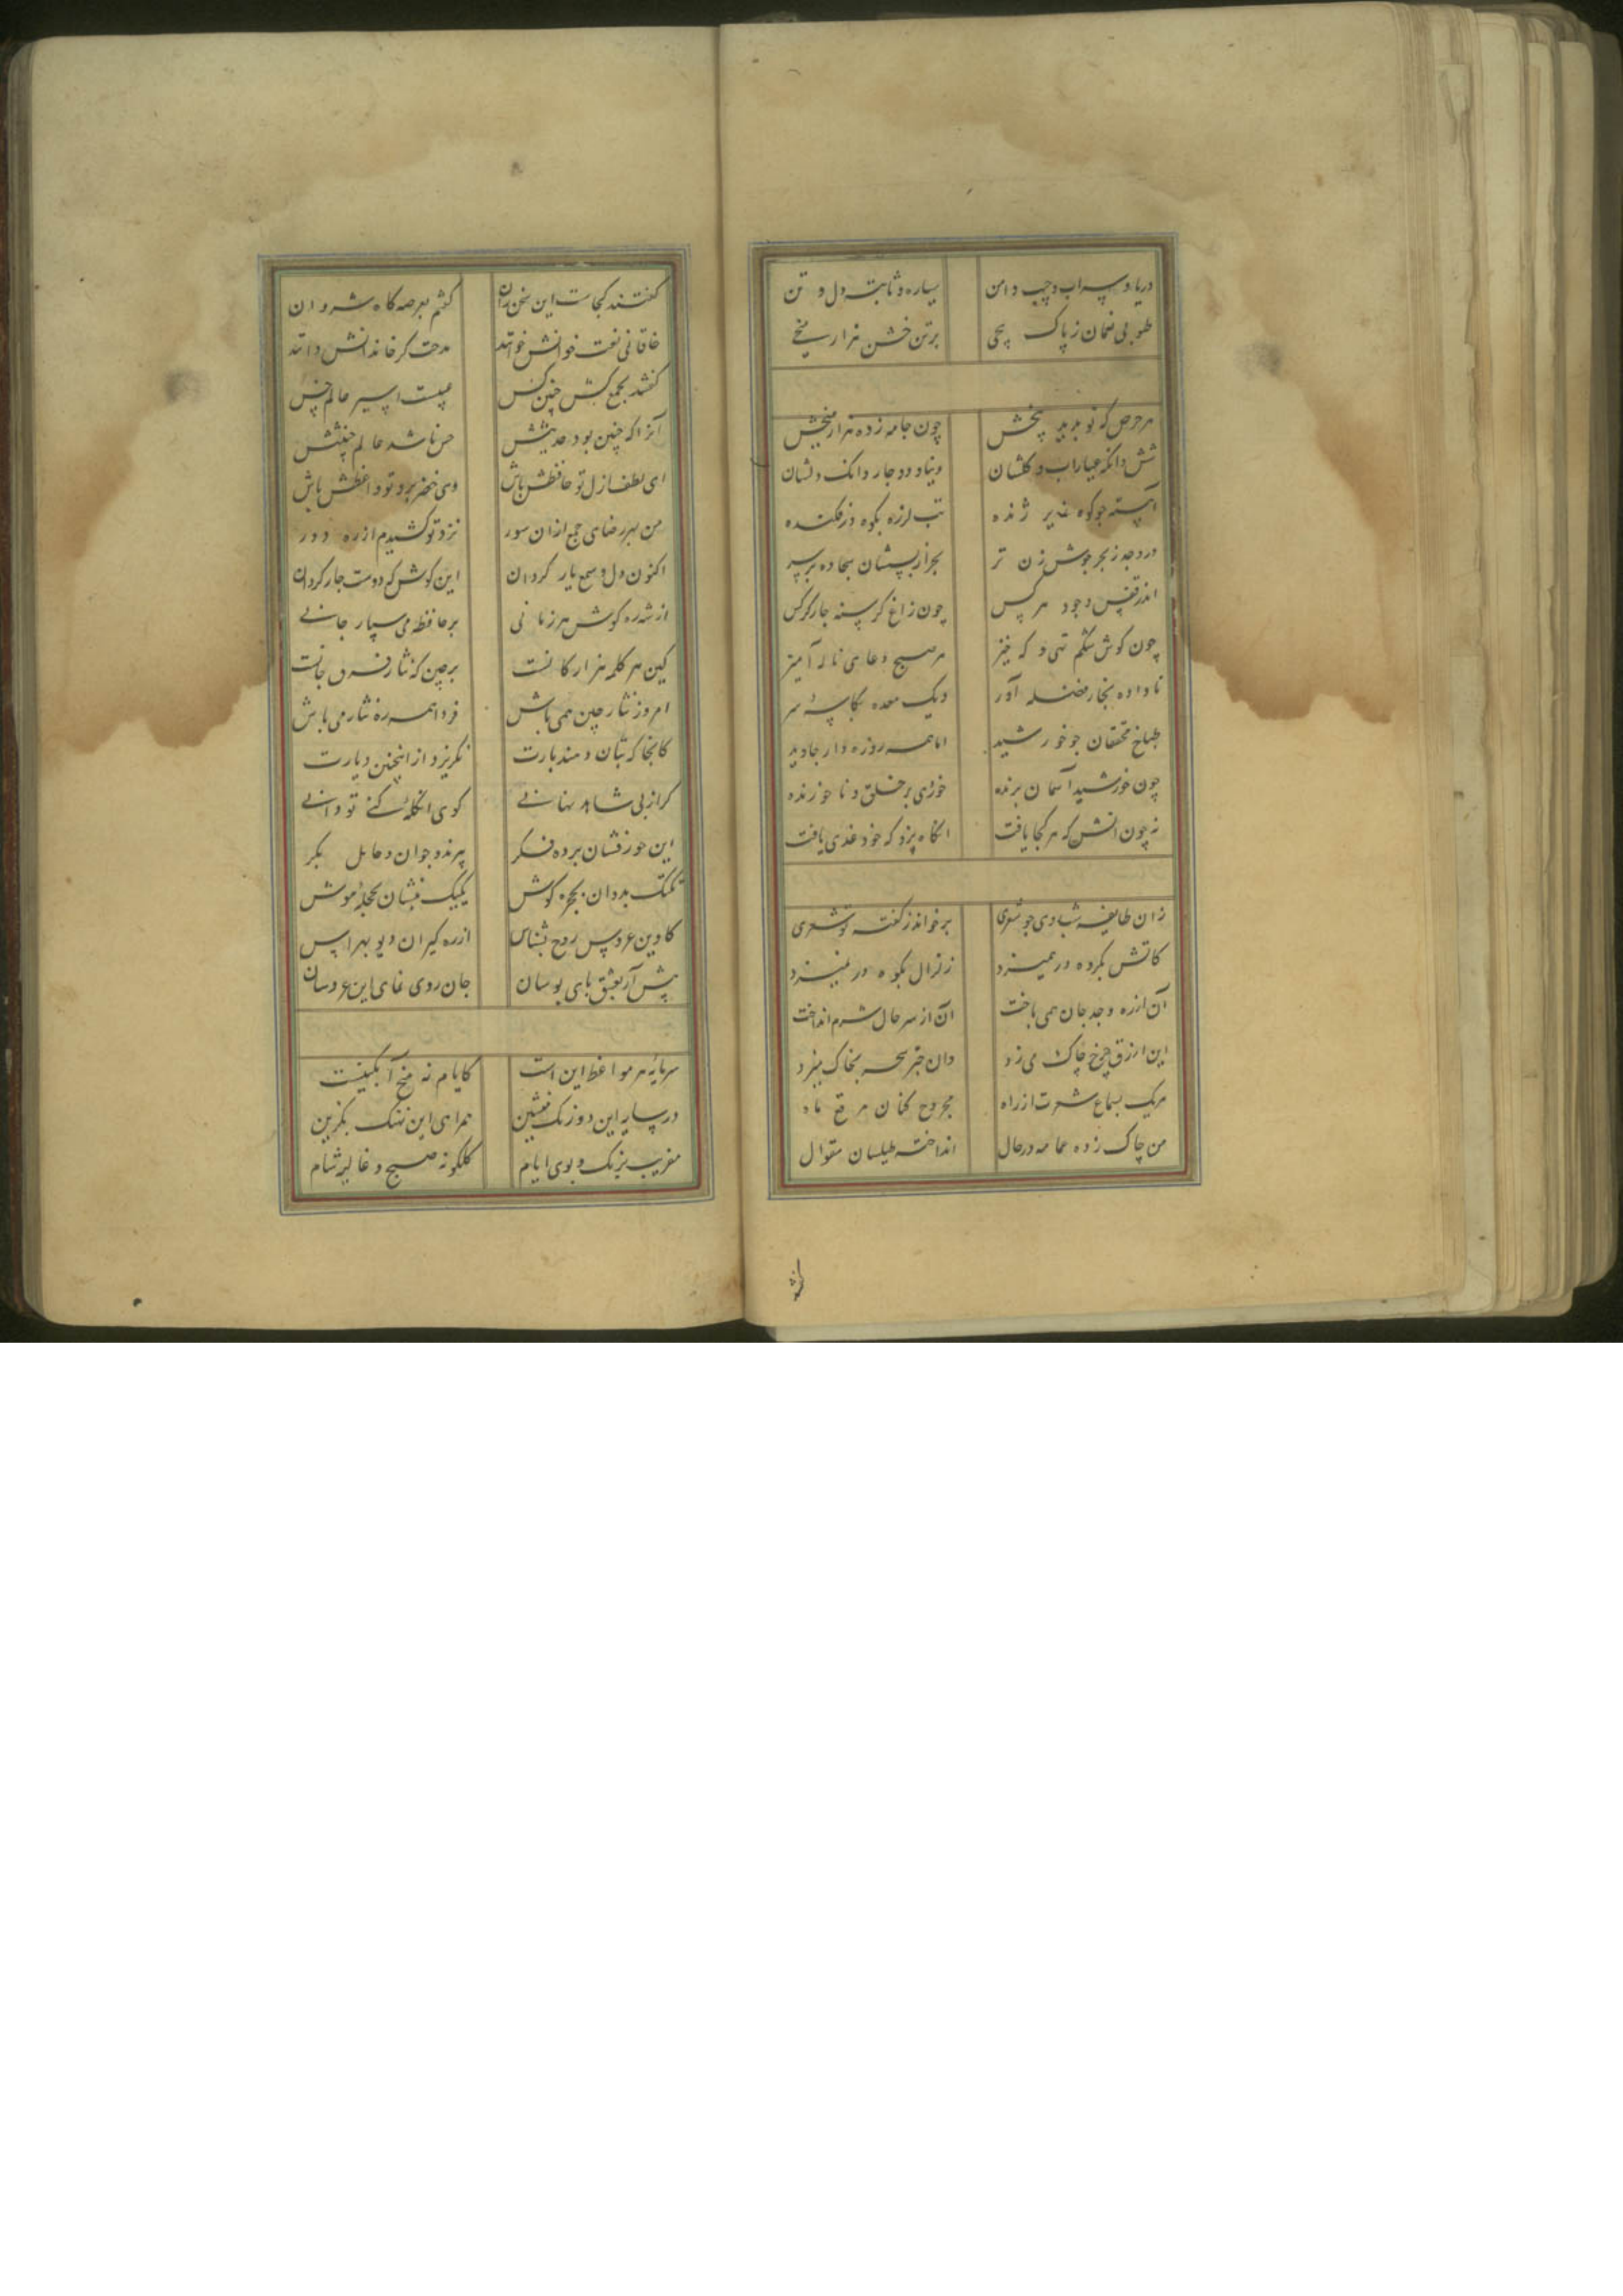 دریا و سراب و جیب و دامن سیاره و ثابته دل و تن
طوبی نمان ز پاک بیخی بر تن خشن هزار میخی
هر حرص که نو بدید چون جامه زده هزار میخش
شش دانگه عیاراب و گلشان
آهسته جو کوه تب لرزه بکوه در فکنده
در وجد ز بحر جوش زن تر سجاده بر سر
اندر قفس وجود هر کس چون زاغ گرسنه جار کرکس
چون کوش شکم تهی و که خیز هر صبح دعای ناله آمیز
نا داده بخار آور دیک معده بکاسهٔ سر
طباخ محققان جو خورشید اما همه روزه دار جاوید
چون خورشید آسمان برنده خوزی بر خلق و نا خورنده
نه چون انش که هر کجا یافت انکاه بزد که خود غذی یافت
زان طایفه شادی جو شعری برخواند ز کفته تو شعری
کاتش بکرده در همیزد زلزال بکوه در همیزد
آن از ره وجد جان همی باخت آن از سر حال شرم انداخت
این ارزق جرخ جاک می زد وان بخاک میزد
هر یک بسماع شعرت از راه مجروح کنان مرقع ماه
من جاک زده عمامه در حال انداخته طیلسان مقوال
کفتند کجاست این سخن ران کفتم بعرصه کاه شروان
خاقانی نعت خوانش خوانند مدحت کر خاندانش دانند
کفتند بجمع کش جنین کس جیست اسیر عالم خس
آنرا که جنین بود حدیثش حر ناشد عالم خبیثش
ای لطف ازل تو حافظش باش وی خضر برو تو واعظش باش
من بهر رضای جمع ازان سور نزد تو کشیدم از ره دور
اکنون دل و سمع یار کردان این کوش که دوست جار کردان
از شه ره کوش هر زمانی بر حافظه می سپار جانی
کین هر کلمه هزار کانست برجین که نثار فرق جانست
امروز نثار جین همی باش فردا همه ره نثار می باش
کانجا که بتان دمند بارت نکریزد از اینجنین دیارت
کر از بی شاهد نهانی کوی انکله کنی تو دانی
این حور فشان برده فکر پیرند و جوان و حامل بکر
یک یک بدوان بحجره کوش یک یک بنشان بحجلهٔ هوش
کاوین عروس روح بشناس از ره کیران دیو بهراس
پیش آر بعشق بای بوسان جان روی نمای این عروسان
سرمایهٔ هر مواعظ این است کایام نه منح آبکینست
در سایه این دو رنک منشین همراهی این نهنک بکزین
مفریب برنک و بوی ایام کلکونه صبح و غالیه شام